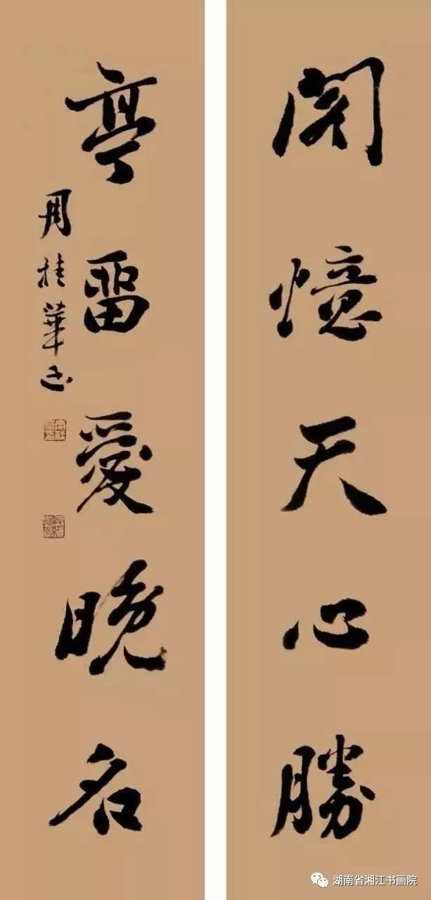 閣憶天心勝
亭畱愛晚名
周桂華书
湖南省湘江书画院